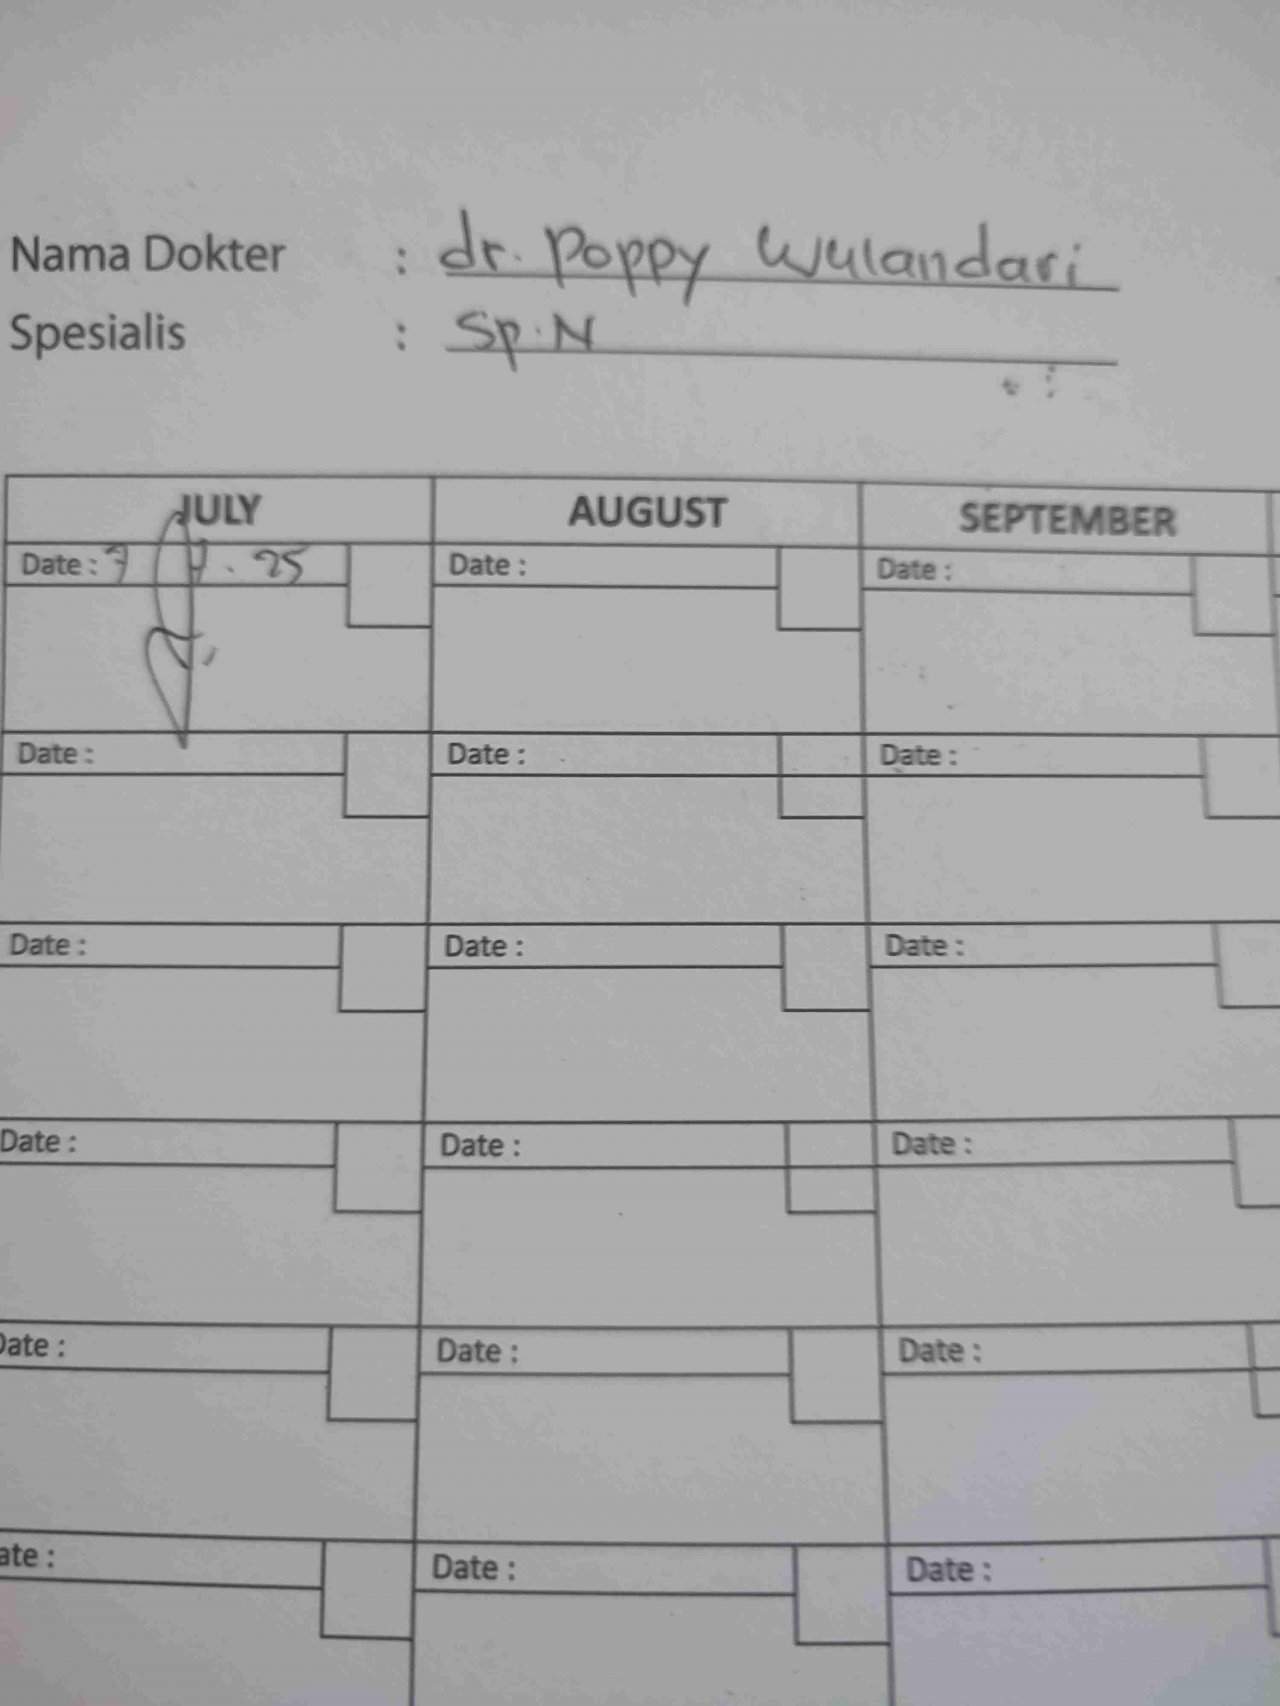 Nama Dokter : dr. Poppy Wulandari
Spesialis : Sp.N
JULY AUGUST SEPTEMBER
Date : 7 7 . 25 Date : Date :
Date : Date : Date :
Date : Date : Date :
Date : Date : Date :
Date : Date : Date :
ate : Date : Date :